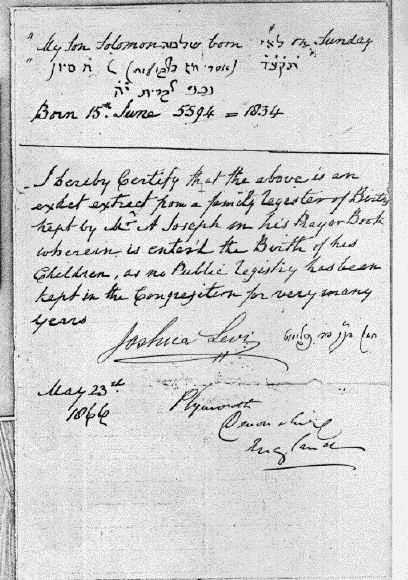 "My Son Solomon שלמה born לא״י on Sunday
" תקצד (אסרי חג השבועות) ח סיון
Born 15th June 5594 = 1834
I hereby Certify that the above is an
exact extract from a family register of Births
kept by Mr A Joseph in his Prayer Book
wherein is enter'd the Birth of his
Children, as no Public Registry has been
kept in the Congregation for very many
years
Joshua Levi
May 23rd
1866 Plymouth
Devonshire
England